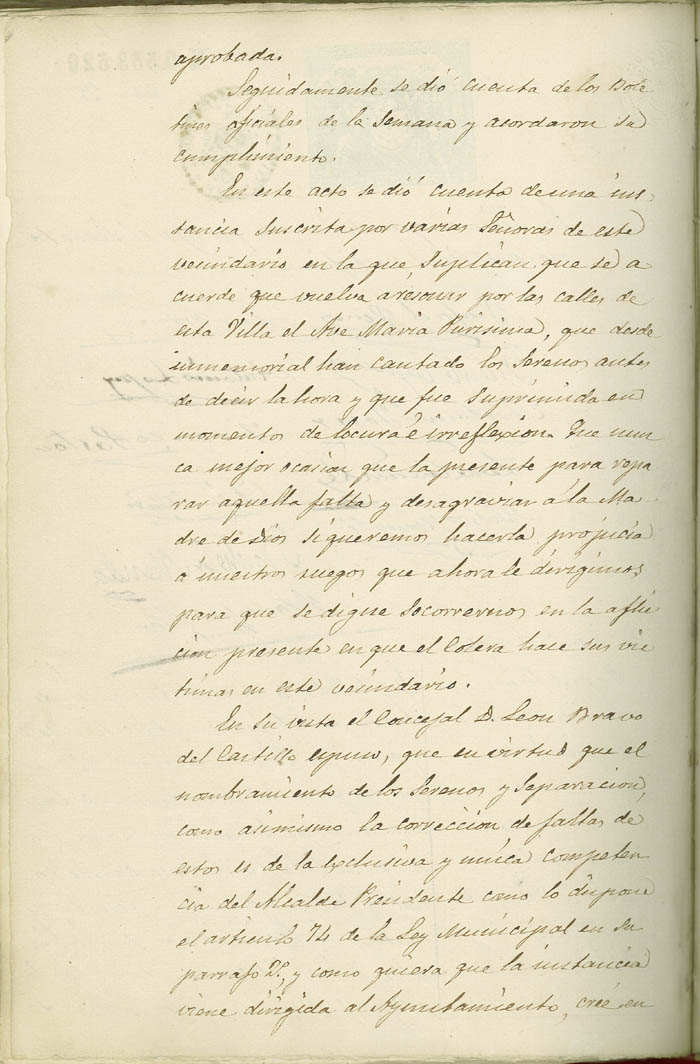 aprobada.
Seguidamente se dió cuenta de los Bole
tines oficiales de la Semana y acordaron su
cumplimiento.
En este acto se dió cuenta de una ins
tancia suscrita por varias Señoras de este
vecindario en la que suplican que se a
cuerde que vuelva á resonar por las calles de
esta Villa el Ave Maria Purisima, que desde
inmemorial han cantado los Serenos antes
de decir la hora y que fue suprimida en
momentos de locura é irreflexion. Que nun
ca mejor ocasion que la presente para repa
rar aquella falta y desagraviar á la Ma
dre de Dios si queremos hacerla propicia
á nuestros ruegos que ahora le dirigimos
para que se digne socorrernos en la aflic
cion presente en que el Colera hace sus vic
timas en este vecindario.
En su vista el Concejal D. Leon Bravo
del Castillo espuso, que en virtud que el
nombramiento de los Serenos y Separacion,
como asimismo la correccion de faltas de
estos es de la esclusiva y unica competen
cia del Alcalde Presidente como lo dispone
el articulo 74 de la Ley Municipal en su
parrafo 2º, y como quiera que la instancia
viene dirigida al Ayuntamiento, creé en